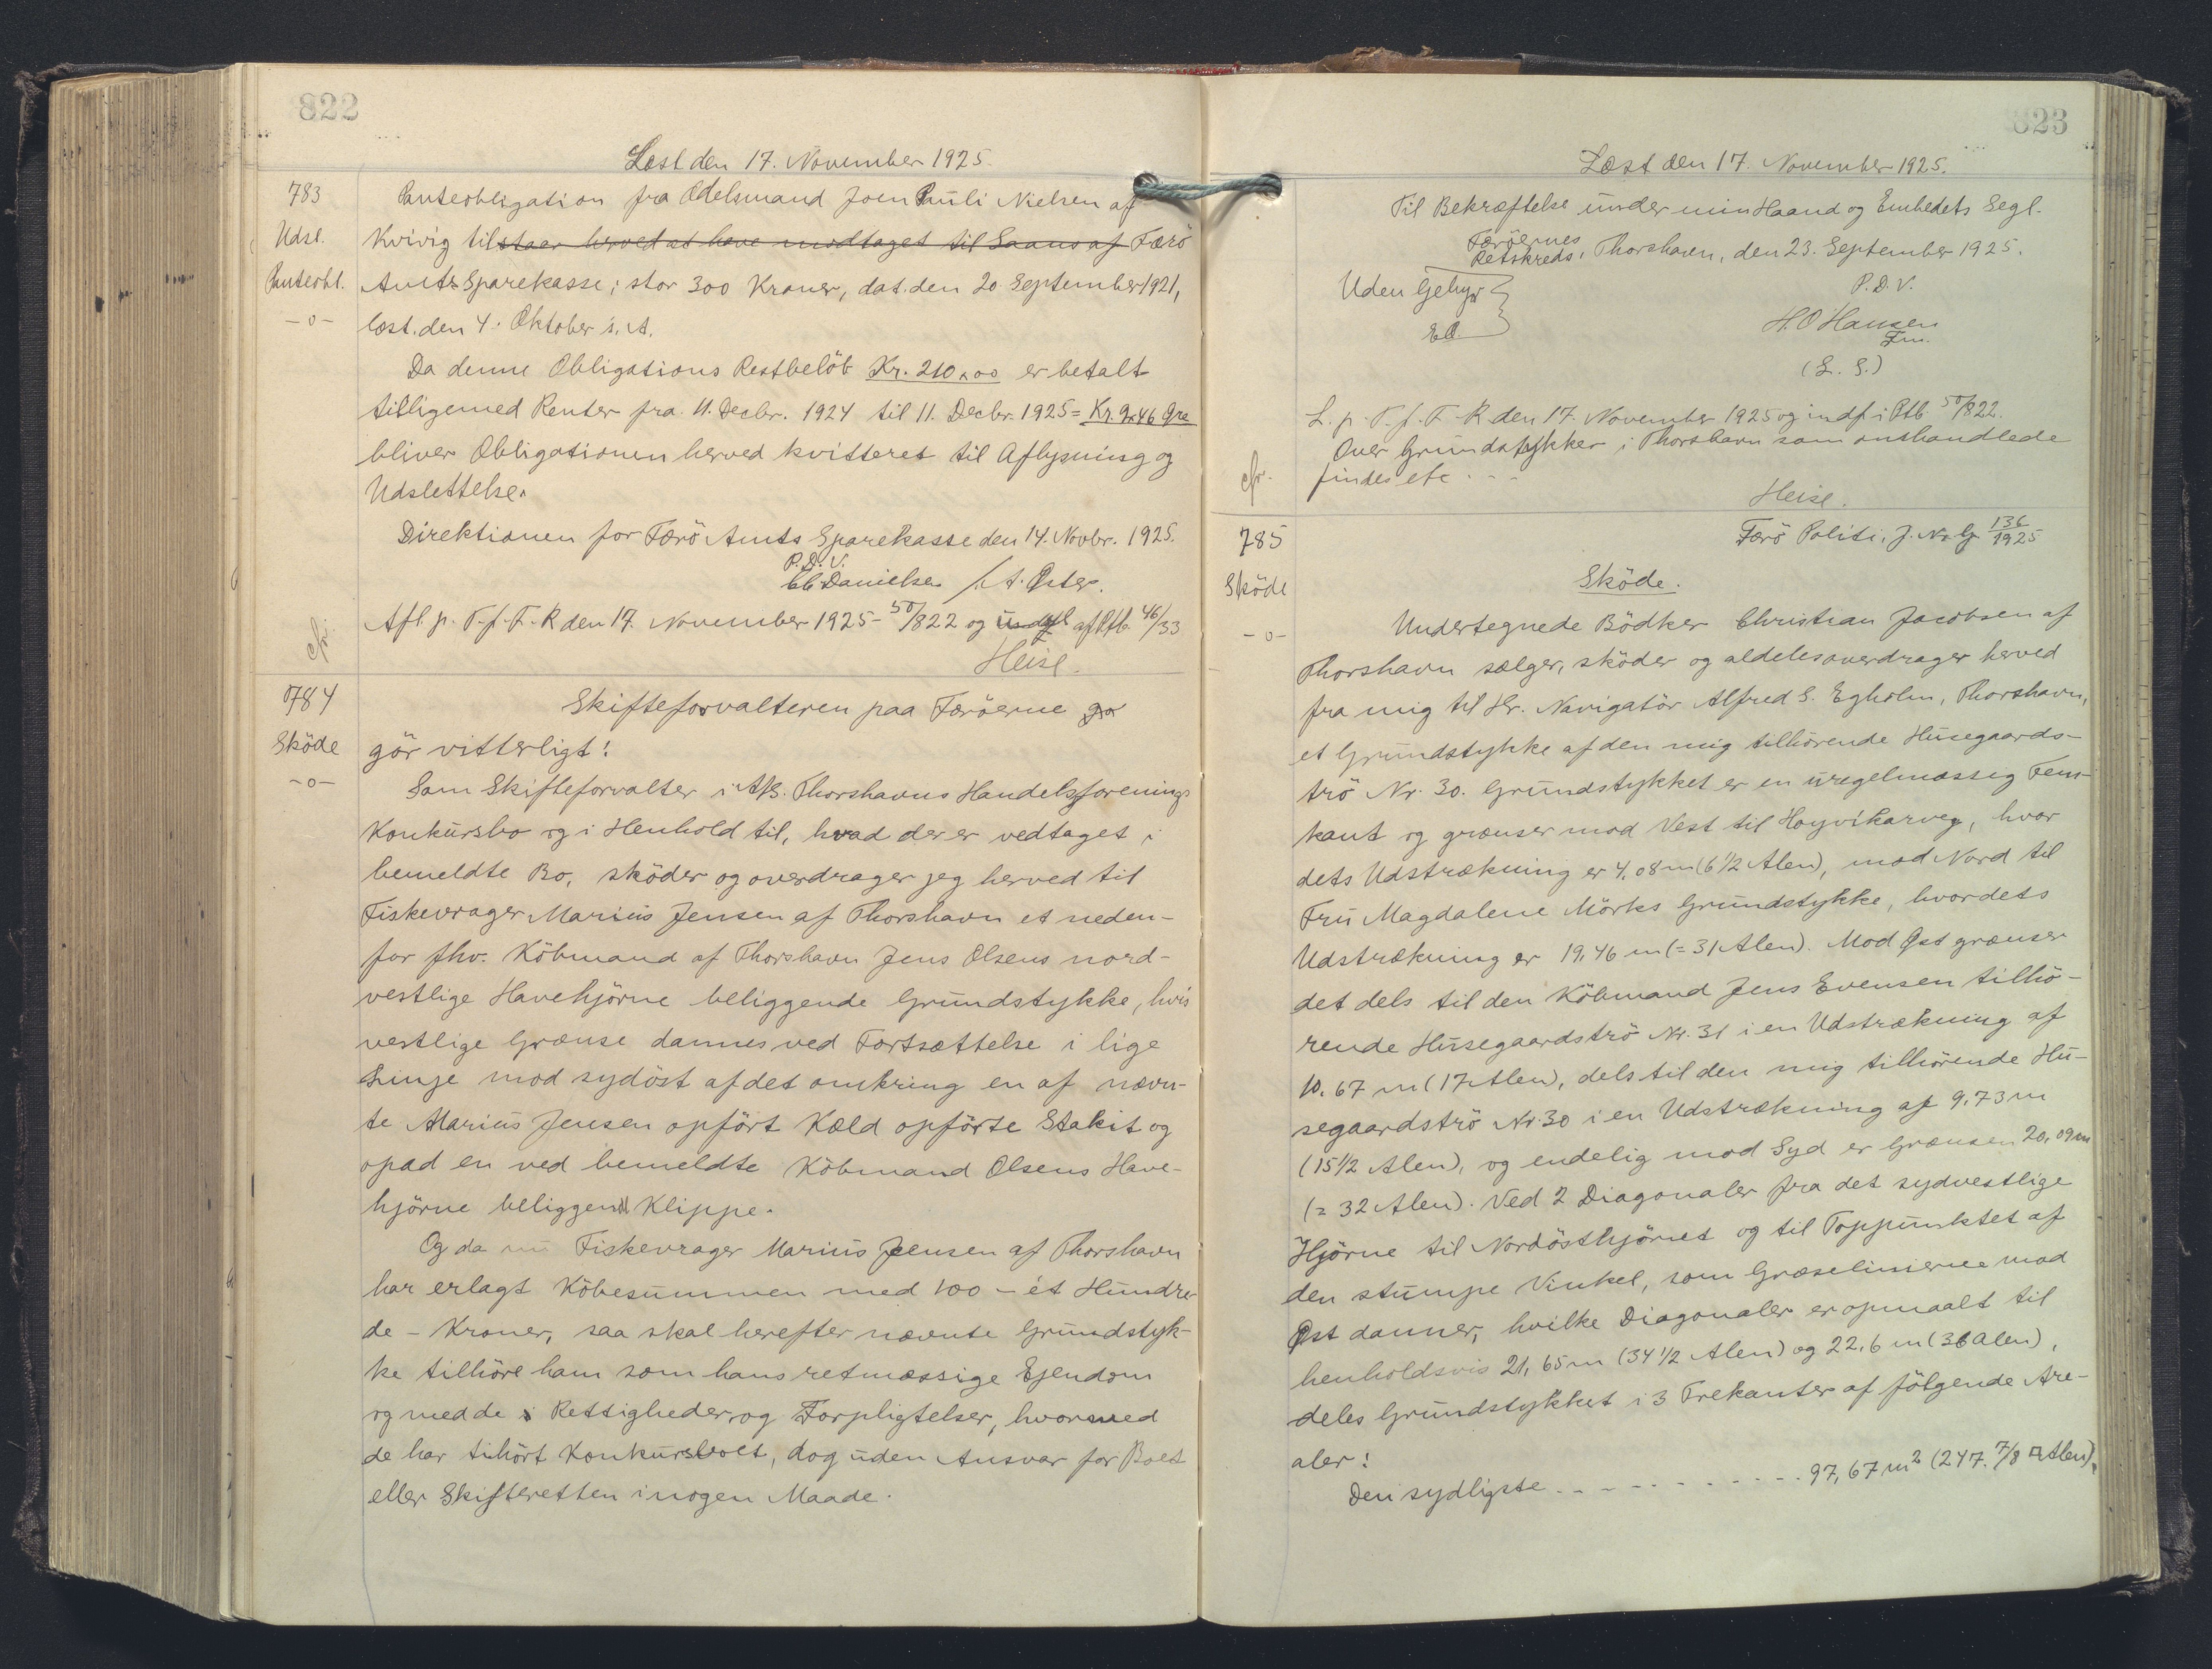 822
Læst den 17. November 1925.
783
Udsl.
Panteobl.
-o-
Panteobligation fra Odelsmand Joen Pauli Nielsen af
Kvivig tilstaar herved at have modtaget til Laans af Færö
Amts Sparekasse; stor 300 Kroner, dat. den 20 September 1921,
læst. den 4. Oktober s. A.
Da denne Obligations Restbelöb Kr. 210,00 er betalt
tilligemed Renter fra 11. Decbr. 1924 til 11. Decbr. 1925 = Kr. 9,46 Øre
bliver Obligationen herved kvitteret til Aflysning og
Udslettelse.
Direktionen for Færö Amts Sparekasse den 14. Novbr. 1925.
P.D.V.
CC Danielsen / A. Øster.
Afl. p. T. f. F. R den 17. November 1925 - 50/822 og af Ptb. 46/33
Heise.
cfr.
784
Sköde
-o-
Skifteforvalteren paa Færöerne
gör vitterligt:
Som Skifteforvalter i A/S. Thorshavns Handelsforenings
Konkursbo og i Henhold til, hvad der er vedtaget i
bemeldte Bo, sköder og overdrager jeg herved til
Fiskevrager Marius Jensen af Thorshavn et neden-
for fhv. Köbmand af Thorshavn Jens Olsens nord-
vestlige Havehjörne beliggende Grundstykke, hvis
vestlige Grænse dannes ved Fortsættelse i lige
Linje mod sydöst af det omkring en af nævn-
te Marius Jensen opfört Kæld opförte Stakit og
opad en ved bemeldte Köbmand Olsens Have-
hjörne beliggende Klippe.
Og da nu Fiskevrager Marius Jensen af Thorshavn
har erlagt Köbesummen med 100 - ét Hundre
de - Kroner, saa skal herefter nævnte Grundstyk-
ke tilhöre ham som hans retmæssige Ejendom
og med de Rettigheder og Forpligtelser, hvormed
de har tilhört Konkursboet, dog uden Ansvar for Boet
eller Skifteretten i nogen Maade.
823
Læst den 17. November 1925.
Til Bekræftelse under min Haand og Embedets Segl.
Færöernes
Retskreds, Thorshavn, den 23. September 1925.
Uden Gebyr
P.D.V.
H.O Hansen
Fm.
(L. S.)
L. p. T. f. F. R den 17. November 1925 og indf i Ptb 50/822.
Over Grundstykker i Thorshavn som omhandlede
findes ete - - -
cfr.
Heise.
785
Sköde
-o-
Færö Politi, J. No. G 136/1925
Sköde.
Undertegnede Bödker Christian Jacobsen af
Thorshavn sælger, sköder og aldeles overdrager herved
fra mig til Hr. Navigatör Alfred S. Egholm, Thorshavn,
et Grundstykke af den mig tilhörende Husegaards-
trö Nr. 30. Grundstykket er en uregelmæssig Fem-
kant og grænser mod Vest til Hoyvikarveg, hvor
dets Udstrækning er 4,08 m (6 1/2 Alen), mod Nord til
Fru Magdalene Mörks Grundstykke, hvor dets
Udstrækning er 19,46 m (= 31 Alen). Mod Øst grænser
det dels til den Köbmand Jens Evensen tilhö-
rende Husegaardströ Nr. 31 i en Udstrækning af
10,67 m (17 Alen), dels til den mig tilhörende Hu-
segaardströ Nr. 30 i en Udstrækning af 9,73 m
(15 1/2 Alen), og endelig mod Syd er Grænsen 20,09 m
(= 32 Alen). Ved 2 Diagonaler fra det sydvestlige
Hjörne til Nordösthjörnet og til Toppunktet af
den stumpe Vinkel, som Græselinierne mod
Øst danner, hvilke Diagonaler er opmaalt til
henholdsvis 21,65 m (34 1/2 Alen) og 22,6 m (36 Alen),
deles Grundstykket i 3 Trekanter af fölgende Are-
aler:
Den sydligste - - - - - - - - - - 97,67 m² (247. 7/8 □ Alen),